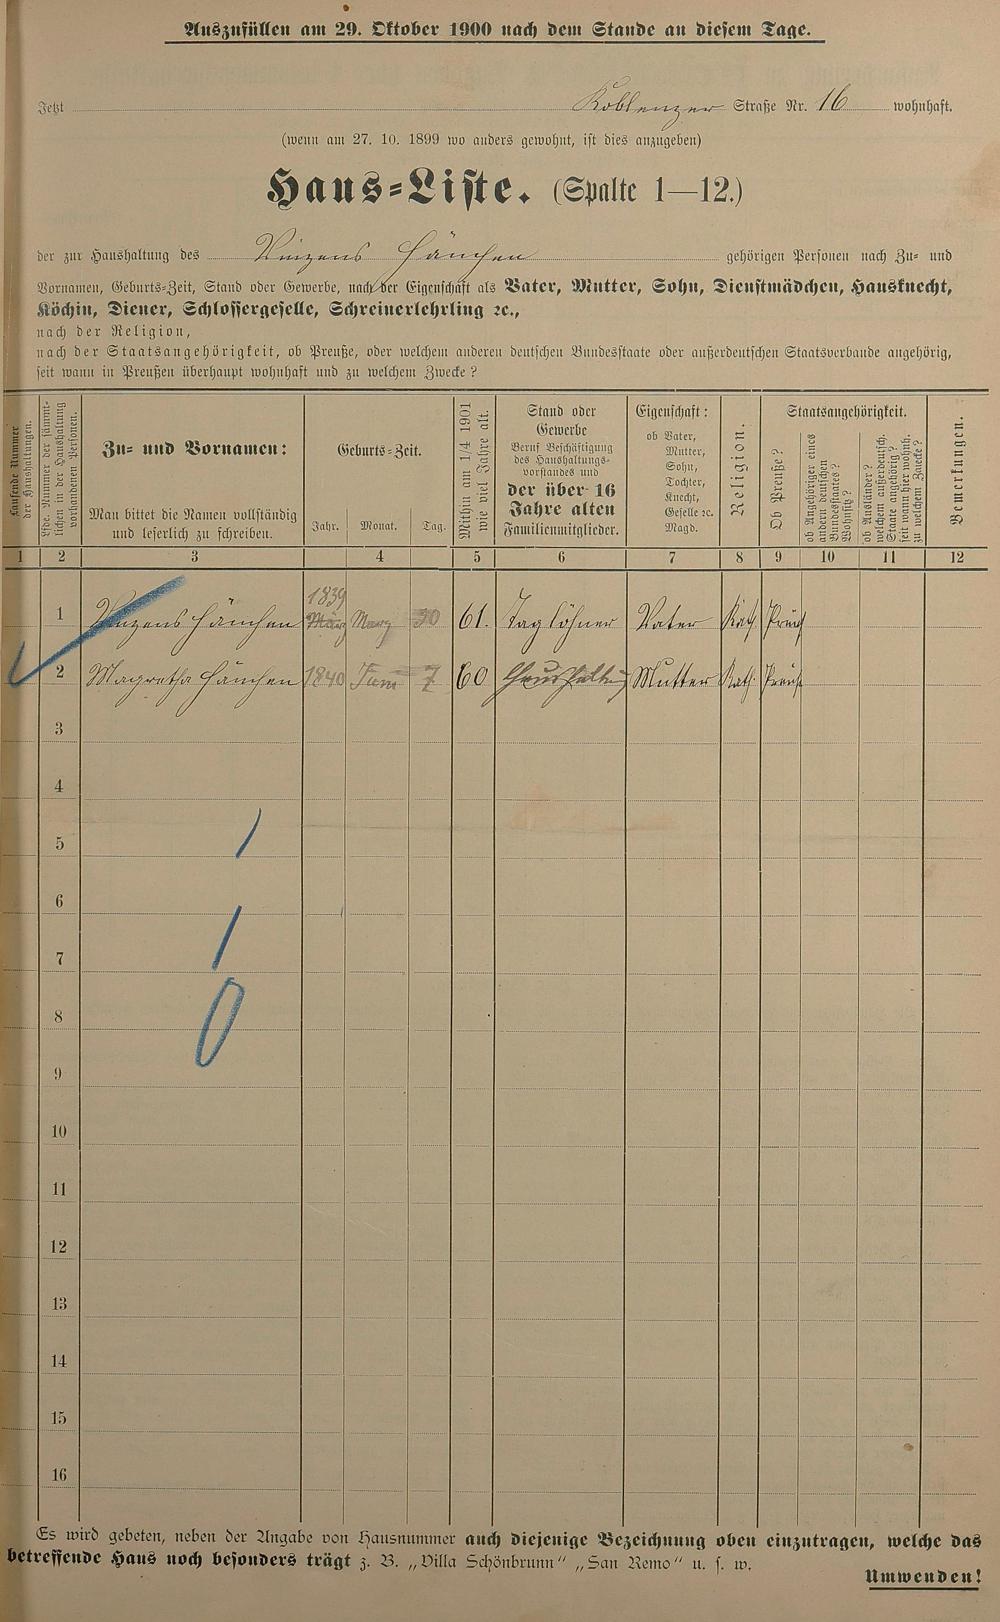 Auszufüllen am 29. Oktober 1900 nach dem Stande an diesem Tage.
Jetzt Koblenzer Straße Nr. 16 wohnhaft.
(wenn am 27. 10. 1899 wo anders gewohnt, ist dies anzugeben)
Haus-Liste. (Spalte 1—12.)
der zur Haushaltung des Vinzens Hänchen gehörigen Personen nach Zu- und
Vornamen, Geburts-Zeit, Stand oder Gewerbe, nach der Eigenschaft als Vater, Mutter, Sohn, Dienstmädchen, Hausknecht,
Köchin, Diener, Schlossergeselle, Schreinerlehrling ꝛc.,
nach der Religion,
nach der Staatsangehörigkeit, ob Preuße, oder welchem anderen deutschen Bundesstaate oder außerdeutschen Staatsverbande angehörig,
seit wann in Preußen überhaupt wohnhaft und zu welchem Zwecke?
Laufende Nummer
der Haushaltungen.
Lfde. Nummer der sämmt-
lichen in der Haushaltung
vorhandenen Personen.
Zu- und Vornamen:
Man bittet die Namen vollständig
und leserlich zu schreiben.
Geburts-Zeit.
Jahr. Monat. Tag.
Mithin am 1/4 1901
wie viel Jahre alt.
Stand oder
Gewerbe
Beruf Beschäftigung
des Haushaltungs-
vorstandes und
der über 16
Jahre alten
Familienmitglieder.
Eigenschaft:
ob Vater,
Mutter,
Sohn,
Tochter,
Knecht,
Geselle ꝛc.
Magd.
Religion.
Staatsangehörigkeit.
Ob Preuße?
ob Angehöriger eines
andern deutschen
Bundesstaates?
Wohnsitz?
ob Ausländer?
welchem außerdeutsch.
Staate angehörig?
seit wann hier wohnh.
zu welchem Zwecke?
Bemerkungen.
1 2 3 4 5 6 7 8 9 10 11 12
1 Vinzens Hänchen 1839 März 30 61. Taglöhner Vater Kath Preuß
2 Magretha Hänchen 1840 Juni 7 60 Haushaltung Mutter Kath. Preuß
3
4
5
6
7
8
9
10
11
12
13
14
15
16
Es wird gebeten, neben der Angabe von Hausnummer auch diejenige Bezeichnung oben einzutragen, welche das
betreffende Haus noch besonders trägt z. B. „Villa Schönbrunn“ „San Remo“ u. s. w.
Umwenden!